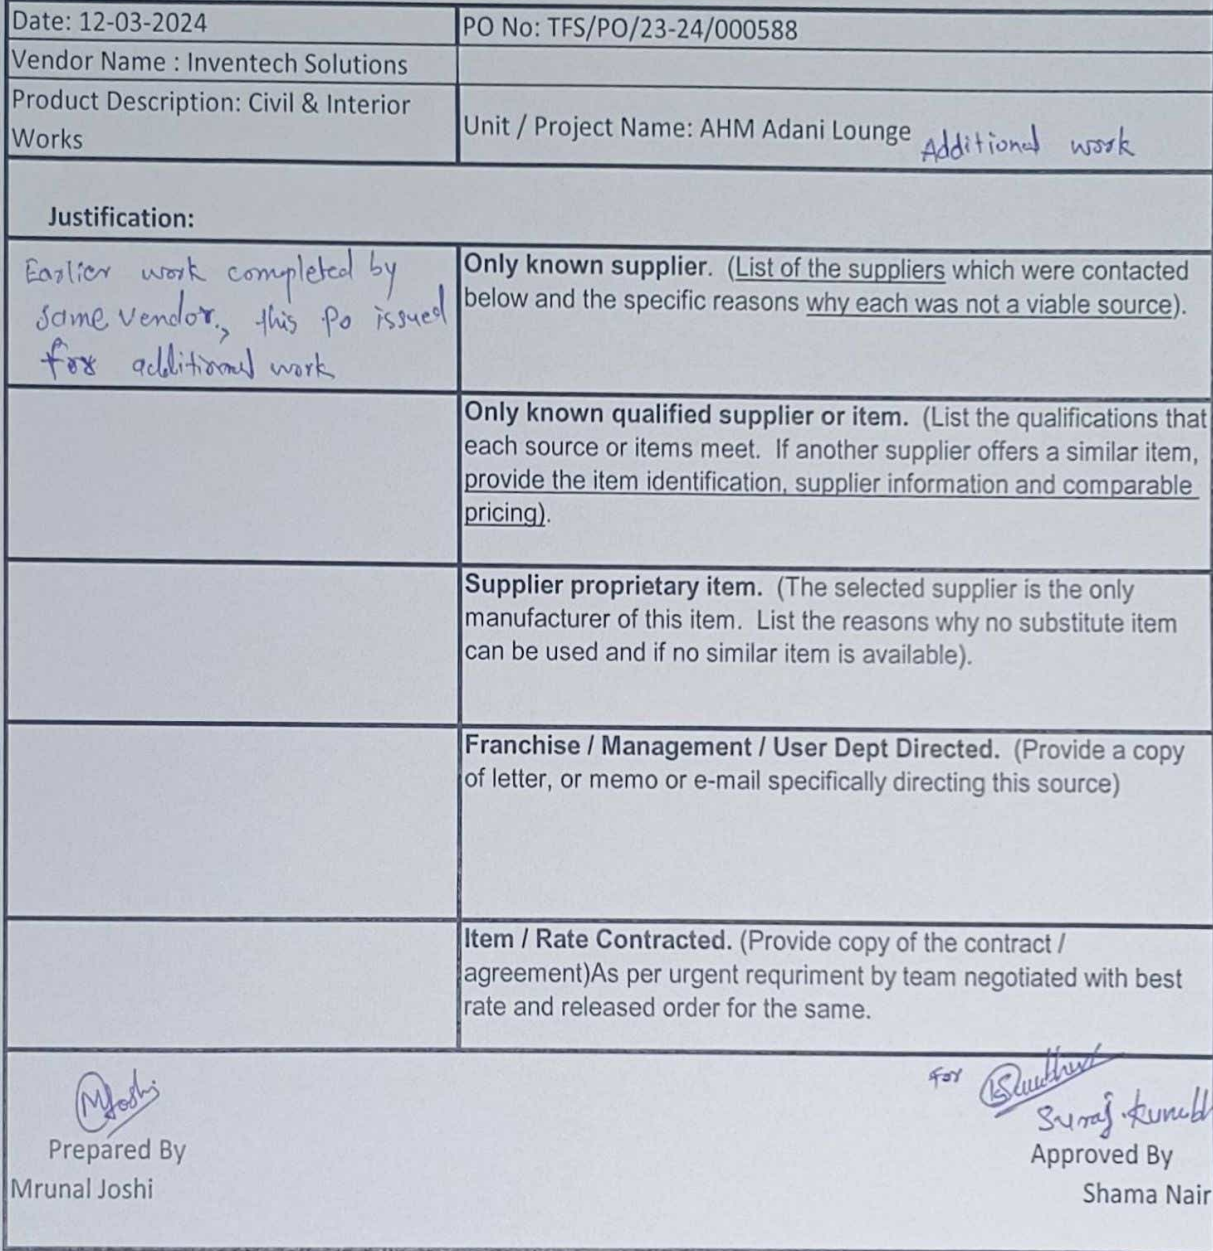 Date: 12-03-2024
PO No: TFS/PO/23-24/000588
Vendor Name : Inventech Solutions
Product Description: Civil & Interior
Works
Unit / Project Name: AHM Adani Lounge Additional work
Justification:
Earlier work completed by
same vendor., this Po issued
for additional work
Only known supplier. (List of the suppliers which were contacted
below and the specific reasons why each was not a viable source).
Only known qualified supplier or item. (List the qualifications that
each source or items meet. If another supplier offers a similar item,
provide the item identification, supplier information and comparable
pricing).
Supplier proprietary item. (The selected supplier is the only
manufacturer of this item. List the reasons why no substitute item
can be used and if no similar item is available).
Franchise / Management / User Dept Directed. (Provide a copy
of letter, or memo or e-mail specifically directing this source)
Item / Rate Contracted. (Provide copy of the contract /
agreement)As per urgent requriment by team negotiated with best
rate and released order for the same.
MJoshi
Prepared By
Mrunal Joshi
For
Suraj
Approved By
Shama Nair